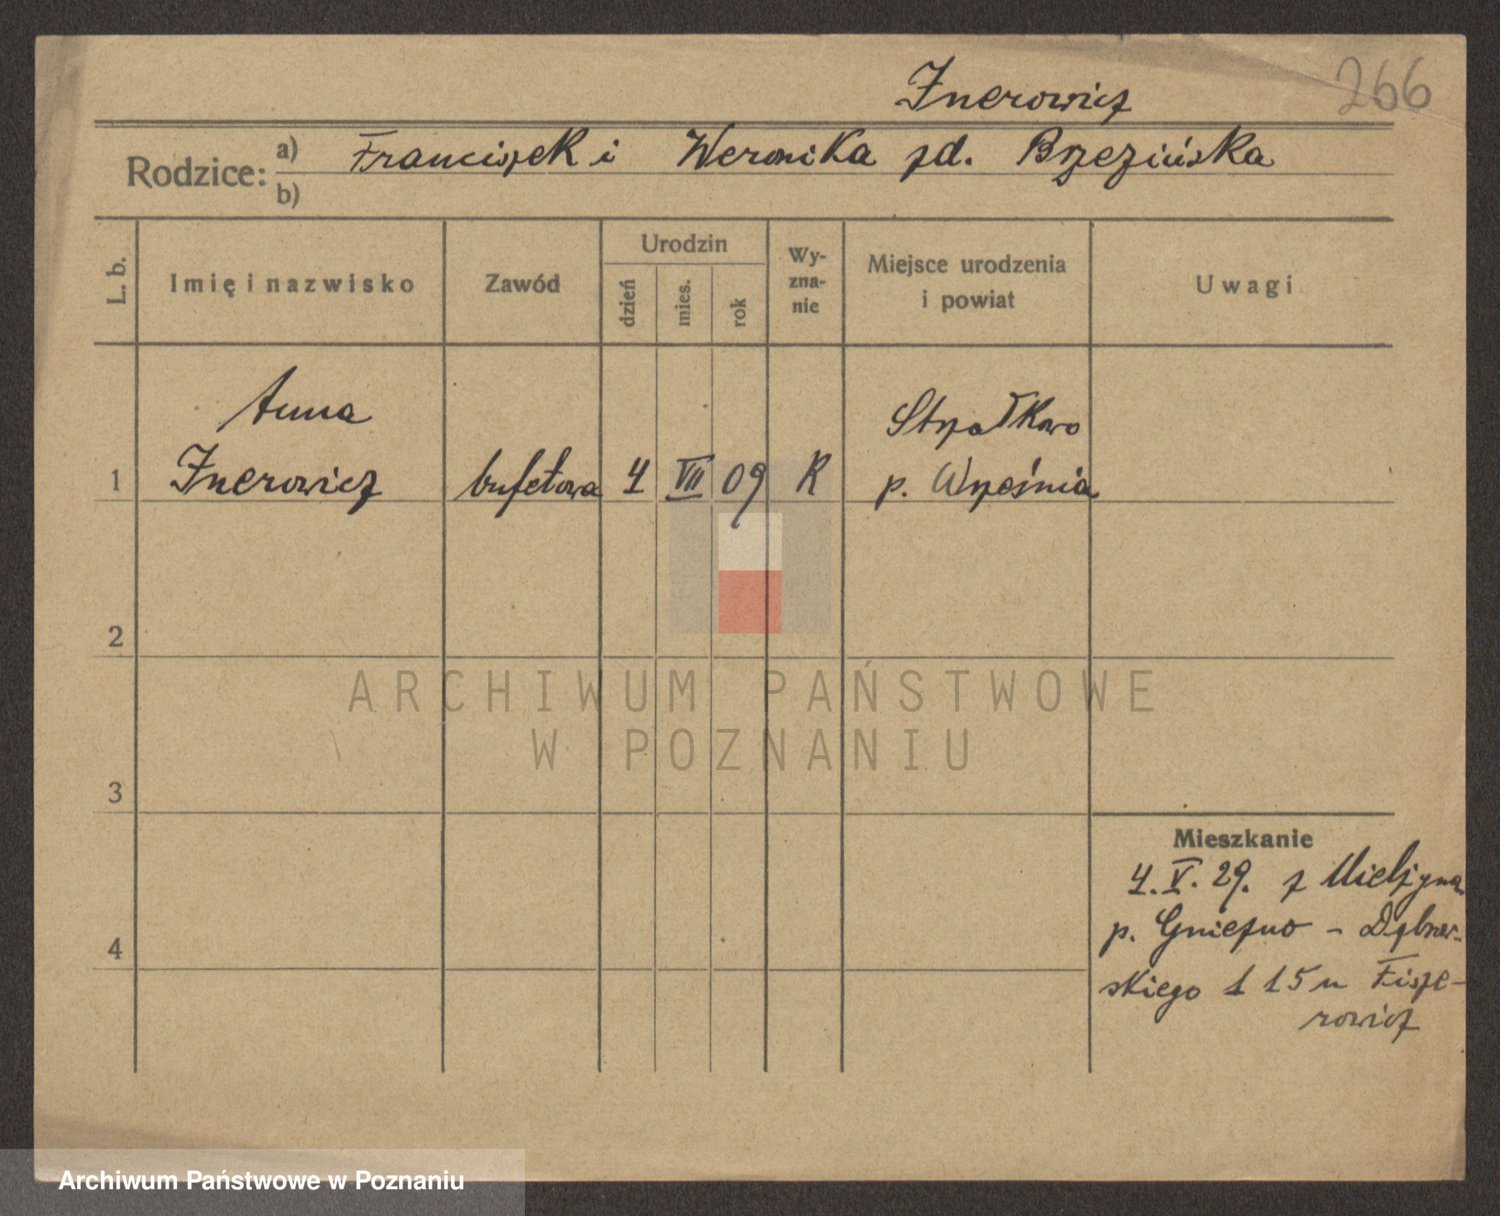 Znerowicz 266
Rodzice: a) Franciszek i Weronika zd. Brzezińska
b)
L. b. Imię i nazwisko Zawód Urodzin dzień mies. rok Wy-
zna-
nie Miejsce urodzenia
i powiat Uwagi
Anna Strzałkowo
1 Znerowicz bufetowa 4 VII 09 R p. Września
2
ARCHIWUM PAŃSTWOWE
W POZNANIU
3
Mieszkanie
4. V. 29. z Mielżyna
p. Gniezno -
4
skiego 1 15 u Fisze-
rowicz
Archiwum Państwowe w Poznaniu